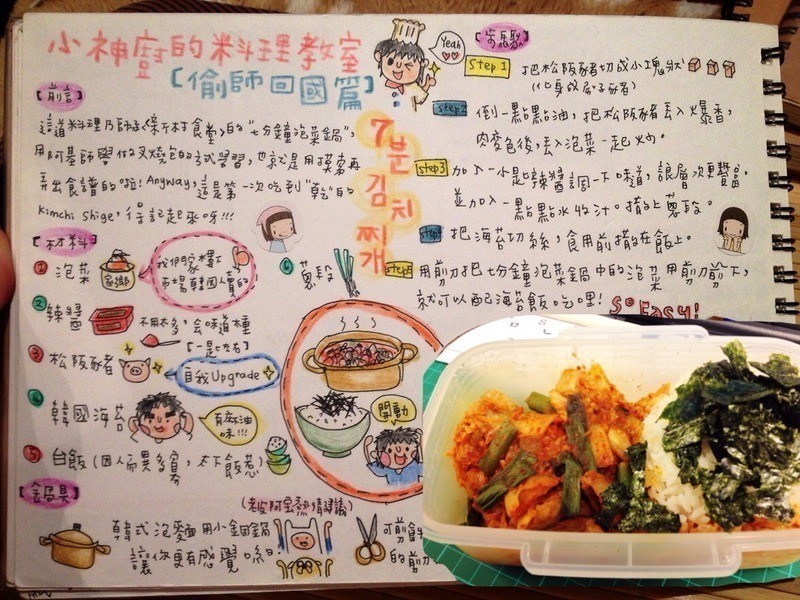 小神廚的料理教室
【偷師回國篇】
【前言】
這道料理乃師承《深夜食堂》的"七分鐘泡菜鍋",
用阿基師學做叉燒包的方式學習,也就是用摸索再
弄出食譜的啦! Anyway, 這是第一次吃到"乾"的
Kimchi Shige, 得記起來呀!!!
7분 김치찌개
【材料】
1 泡菜
家鄉
我們家樓下
市場韓國人賣的
2 辣醬
不用太多,会味道重
【一是左右】
3 松阪豬
自我Upgrade
4 韓國海苔
有麻油
味!!!
5 白飯 (因人而異多寡,太下飯惹)
6 蔥段
開動
【鍋具】
(老皮阿寶熱情建議)
韓式泡麵用小銅鍋
讓你更有感覺喲
可剪食物
的剪刀
Yeah
【步驟】
Step 1 把松阪豬切成小塊狀
(化身成骰子豬)
step2 倒一點點油,把松阪豬丟入爆香,
肉变色後,丟入泡菜一起炒。
step3 加入一小匙辣醬調一下味道,讓層次更豐富。
並加入一點點水收汁。撒上蔥段。
step4 把海苔切絲,食用前撒在飯上。
step5 用剪刀把七分鐘泡菜鍋中的泡菜用剪刀剪下,
就可以配海苔飯吃哩! So Easy!